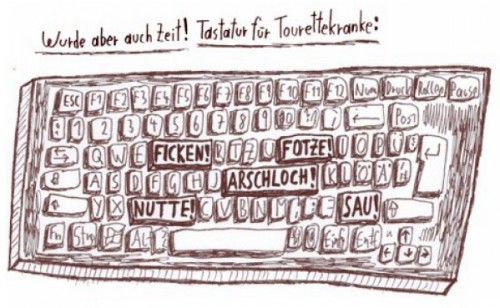 Wurde aber auch Zeit! Tastatur für Tourettekranke:
ESC F1 F2 F3 F4 F5 F6 F7 F8 F9 F10 F11 F12 Num Druck Rollen Pause
1 2 3 4 5 6 7 8 9 Pos1
Q W E FICKEN! R T Z U FOTZE! I O P Ü
A S D F G H J ARSCHLOCH! K L Ö Ä
Y X NUTTE! C V B N M SAU!
Fn Strg Alt Einf Entf